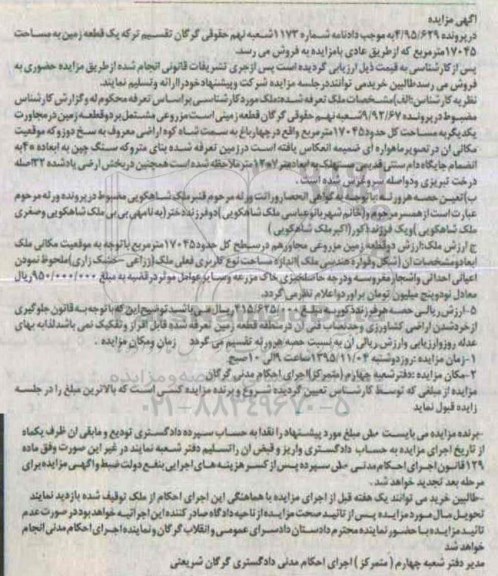 آگهی مزایده
در پرونده ۴/۹۵/۶۲۹ به موجب دادنامه شماره ۱۱۷۳ شعبه نهم حقوقی گرگان تقسیم ترکه یک قطعه زمین به مساحت
۱۷۰۴۵ متر مربع که از طریق عادی با مزایده به فروش می رسد.
پس از کارشناسی به قیمت ذیل ارزیابی گردیده است پس از جری تشریفات قانونی انجام شده از طریق مزایده حضوری به
فروش می رسد طالبین خریدمی توانند در جلسه مزایده شرکت و پیشنهاد خود را ارائه و تسلیم نمایند.
نظریه کارشناس: الف) مشخصات ملک تعرفه شده: ملک مورد کارشناسی بر اساس تعرفه محکوم له و گزارش کارشناس
مضبوط در پرونده ۹/۹۲/۶۷ شعبه نهم حقوقی گرگان قطعه زمینی است مزروعی مشتمل بر دو قطعه زمین در مجاورت
یکدیگر به مساحت کل حدود ۱۷۰۴۵ متر مربع واقع در چهارباغ به سمت شاه کوه اراضی معروف به سخ دوز که موقعیت
مکانی آن در تصویر ماهواره ای ضمیمه انعکاس یافته است در زمین تعرفه شده بنای متروکه سنگ چین به ابعاده ۴ به
انضمام جایگاه دام سنتی قدیمی مستهلک به ابعاد متر ۷*۱۲ متر ملاحظه شده است همچنین در بخش ارضی یاد شده ۳۲ اصله
درخت تبریزی و دو اصله سرو غرس شده است.
ب) تعیین حصه هر ورثه: با توجه به گواهی انحصار وراثت ورثه مرحوم قنبر ملک شاهکویی مضبوط در پرونده ورثه مرحوم
عبارت است از همسر مرحوم و (خانم شهربانو عباسی ملک شاهکویی) دو فرزند دختر (به نامهی بی بی ملک شاهکویی و صغری
ملک شاهکویی) و یک فرزند ذکور (اکبر ملک شاهکویی)
ج) ارزش ملک: ارزش دو قطعه زمین مزروعی مجاور هم در سطح کل حدود ۱۷۰۴۵ متر مربع با توجه به موقعیت مکانی ملک
ابعاد و مشخصات آن (شکل و قواره هندسی ملک) اندازه مساحت نوع کاربری فعلی ملک (زراعی-خشکه زاری) ملحوظ نمودن
اعیانی احداثی و اشجار مغروسه و درجه حاصلخیزی خاک مزرعه و سایر عوامل موثر در قضیه به مبلغ ۹۵۰/۰۰۰/۰۰۰ ریال
معادل نود و پنج میلیون تومان برآورد و اعلام نظر می گردد.
۵-ارزش ریالی حصه هر فرزند ذکور به مبلغ ۴۱۵/۶۲۵/۰۰۰ ریال می باشید توضیح این که با توجه به قانون جلوگیری
از خرد شدن اراضی کشاورزی و حد نصاب فنی آن در منطقه قطعه زمین تعرفه شده قابل افراز و تفکیک نمی باشد لذا به بهای
عدله روز و ارزیابی و ارزش ریالی آن به نسبت حصه هر ورثه تقسیم می گردد زمان و مکان مزایده.
۱-زمان مزایده: روز دوشنبه ۱۳۹۵/۱۱/۰۴ ساعت ۹ الی ۱۰ صبح
۲-مکان مزایده: دفتر شعبه چهارم (متمرکز) اجرای احکام مدنی گرگان
مزایده از مبلغی که توسط کارشناس تعیین گردیده شروع و برنده مزایده کسی است که بالاترین مبلغ را در جلسه
زایده قبول نماید
-برنده مزایده می بایست مبلغ مورد پیشنهاد را نقدا به حساب سپرده دادگستری تودیع و مابقی آن ظرف یکماه
از تاریخ اجرای مزایده به حساب دادگستری واریز و قبض آن را تسلیم دفتر شعبه نمایند در غیر این صورت وفق ماده
۱۲۹ قانون اجرای احکام مدنی سپرده پس از کسر هزینه های اجرایی بنفع دولت ضبط و آگهی مزایده برای
مرحله بعد تجدید خواهد شد.
-طالبین خرید می توانند یک هفته قبل از اجرای مزایده با هماهنگی این اجرای احکام از ملک توقیف شده بازدید نمایند
تحویل مال مورد مزایده پس از تائید صحت مزایده از ناحیه دادگاه صادر کننده این اجرائیه خواهد بود در صورت عدم
تائید مزایده با حضور نماینده محترم دادستان دادسرای عمومی و انقلاب گرگان و نماینده اجرای احکام مدنی انجام
خواهد شد
مدیر دفتر شعبه چهارم (متمرکز) اجرای احکام مدنی دادگستری گرگان شریعتی
۰۲۱-۸۸۳۴۹۶۷۰-۵